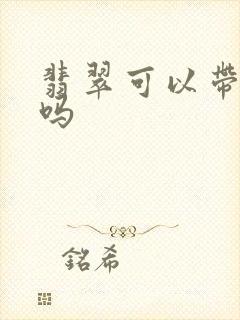 翡翠可以带
吗
銘希